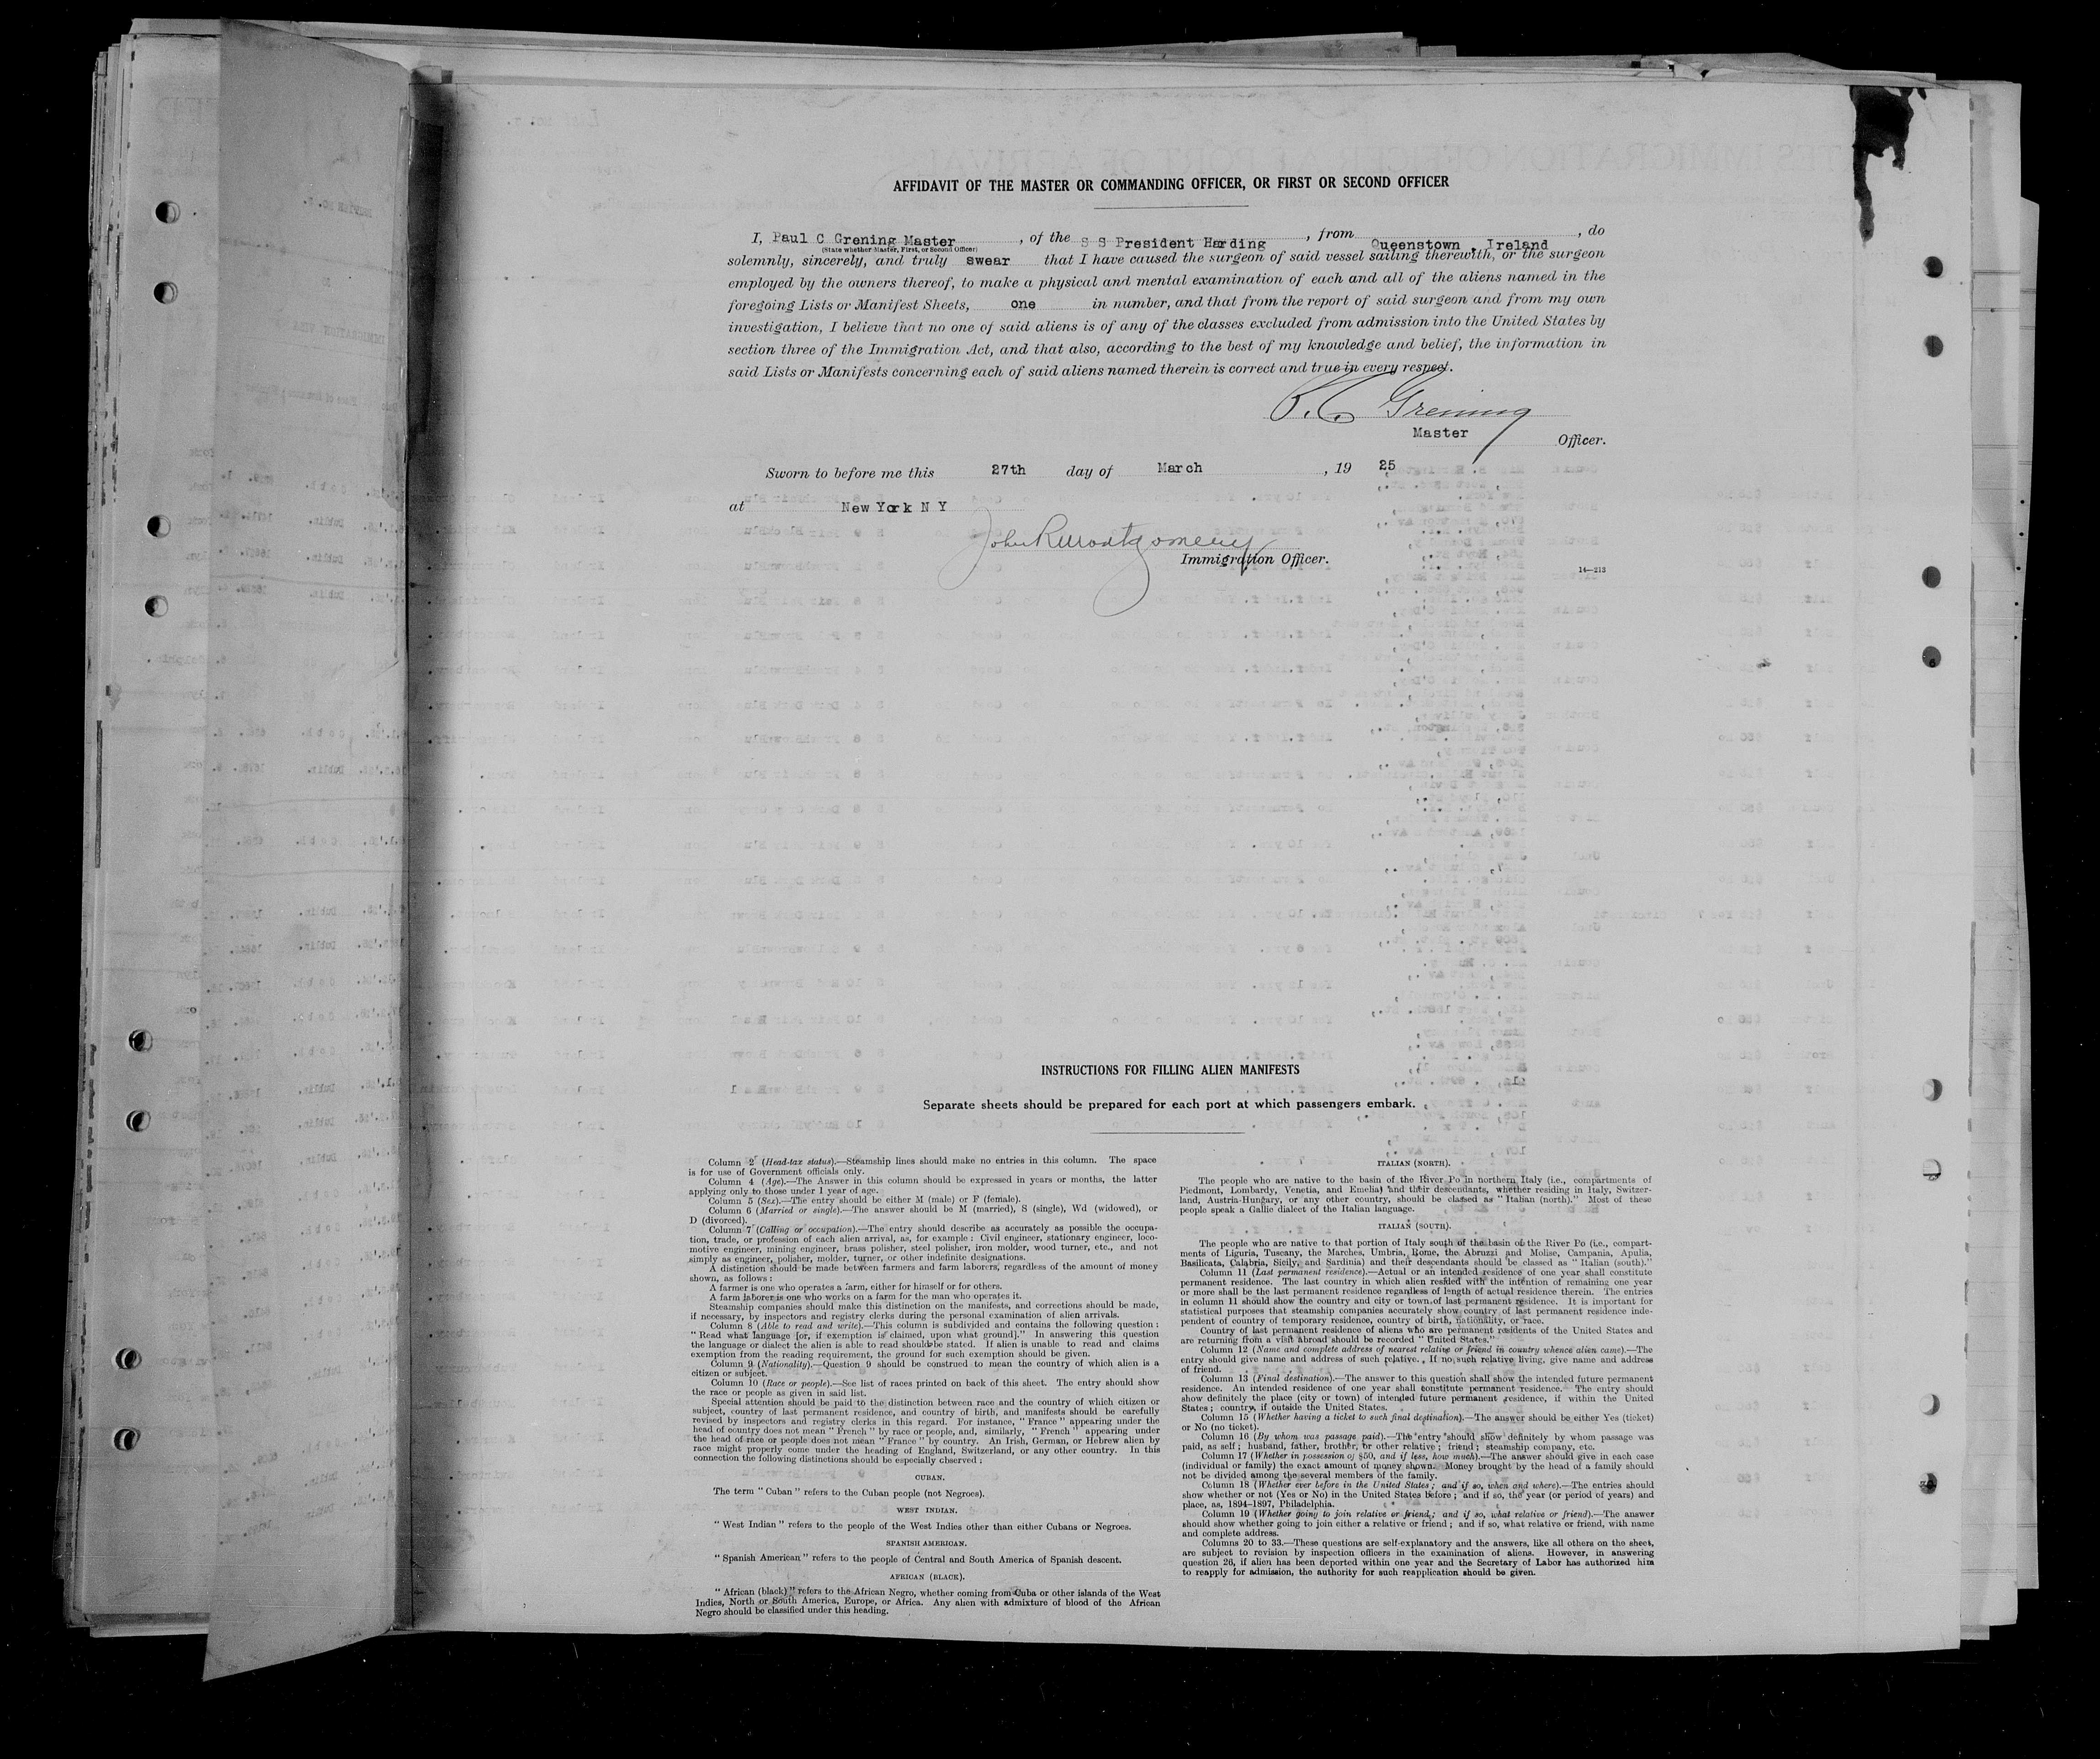 AFFIDAVIT OF THE MASTER OR COMMANDING OFFICER, OR FIRST OR SECOND OFFICER
I, Paul C Grening Master, of the S S President Harding, from Queenstown, Ireland, do
(State whether Master, First, or Second Officer)
solemnly, sincerely, and truly swear that I have caused the surgeon of said vessel sailing therewith, or the surgeon
employed by the owners thereof, to make a physical and mental examination of each and all of the aliens named in the
foregoing Lists or Manifest Sheets, one in number, and that from the report of said surgeon and from my own
investigation, I believe that no one of said aliens is of any of the classes excluded from admission into the United States by
section three of the Immigration Act, and that also, according to the best of my knowledge and belief, the information in
said Lists or Manifests concerning each of said aliens named therein is correct and true in every respect.
P. C. Grening
Master Officer.
Sworn to before me this 27th day of March, 19 25
at New York N Y
John R Montgomery
Immigration Officer.
14—213
INSTRUCTIONS FOR FILLING ALIEN MANIFESTS
Separate sheets should be prepared for each port at which passengers embark.
Column 2 (Head-tax status).—Steamship lines should make no entries in this column. The space
is for use of Government officials only.
Column 4 (Age).—The Answer in this column should be expressed in years or months, the latter
applying only to those under 1 year of age.
Column 5 (Sex).—The entry should be either M (male) or F (female).
Column 6 (Married or single).—The answer should be M (married), S (single), Wd (widowed), or
D (divorced).
Column 7 (Calling or occupation).—The entry should describe as accurately as possible the occupa-
tion, trade, or profession of each alien arrival, as, for example: Civil engineer, stationary engineer, loco-
motive engineer, mining engineer, brass polisher, steel polisher, iron molder, wood turner, etc., and not
simply as engineer, polisher, molder, turner, or other indefinite designations.
A distinction should be made between farmers and farm laborers, regardless of the amount of money
shown, as follows:
A farmer is one who operates a farm, either for himself or for others.
A farm laborer is one who works on a farm for the man who operates it.
Steamship companies should make this distinction on the manifests, and corrections should be made,
if necessary, by inspectors and registry clerks during the personal examination of alien arrivals.
Column 8 (Able to read and write).—This column is subdivided and contains the following question:
"Read what language [or, if exemption is claimed, upon what ground]." In answering this question
the language or dialect the alien is able to read should be stated. If alien is unable to read and claims
exemption from the reading requirement, the ground for such exemption should be given.
Column 9 (Nationality).—Question 9 should be construed to mean the country of which alien is a
citizen or subject.
Column 10 (Race or people).—See list of races printed on back of this sheet. The entry should show
the race or people as given in said list.
Special attention should be paid to the distinction between race and the country of which citizen or
subject, country of last permanent residence, and country of birth, and manifests should be carefully
revised by inspectors and registry clerks in this regard. For instance, "France" appearing under the
head of country does not mean "French" by race or people, and, similarly, "French" appearing under
the head of race or people does not mean "France" by country. An Irish, German, or Hebrew alien by
race might properly come under the heading of England, Switzerland, or any other country. In this
connection the following distinctions should be especially observed:
CUBAN.
The term "Cuban" refers to the Cuban people (not Negroes).
WEST INDIAN.
"West Indian" refers to the people of the West Indies other than either Cubans or Negroes.
SPANISH AMERICAN.
"Spanish American" refers to the people of Central and South America of Spanish descent.
AFRICAN (BLACK).
"African (black)" refers to the African Negro, whether coming from Cuba or other islands of the West
Indies, North or South America, Europe, or Africa. Any alien with admixture of blood of the African
Negro should be classified under this heading.
ITALIAN (NORTH).
The people who are native to the basin of the River Po in northern Italy (i.e., compartments of
Piedmont, Lombardy, Venetia, and Emelia) and their descendants, whether residing in Italy, Switzer-
land, Austria-Hungary, or any other country, should be classed as "Italian (north)." Most of these
people speak a Gallic dialect of the Italian language.
ITALIAN (SOUTH).
The people who are native to that portion of Italy south of the basin of the River Po (i.e., compart-
ments of Liguria, Tuscany, the Marches, Umbria, Rome, the Abruzzi and Molise, Campania, Apulia,
Basilicata, Calabria, Sicily, and Sardinia) and their descendants should be classed as "Italian (south)."
Column 11 (Last permanent residence).—Actual or an intended residence of one year shall constitute
permanent residence. The last country in which alien resided with the intention of remaining one year
or more shall be the last permanent residence regardless of length of actual residence therein. The entries
in column 11 should show the country and city or town of last permanent residence. It is important for
statistical purposes that steamship companies accurately show country of last permanent residence inde-
pendent of country of temporary residence, country of birth, nationality, or race.
Country of last permanent residence of aliens who are permanent residents of the United States and
are returning from a visit abroad should be recorded "United States."
Column 12 (Name and complete address of nearest relative or friend in country whence alien came).—The
entry should give name and address of such relative. If no such relative living, give name and address
of friend.
Column 13 (Final destination).—The answer to this question shall show the intended future permanent
residence. An intended residence of one year shall constitute permanent residence. The entry should
show definitely the place (city or town) of intended future permanent residence, if within the United
States; country, if outside the United States.
Column 15 (Whether having a ticket to such final destination).—The answer should be either Yes (ticket)
or No (no ticket).
Column 16 (By whom was passage paid).—The entry should show definitely by whom passage was
paid, as self; husband, father, brother, or other relative; friend; steamship company, etc.
Column 17 (Whether in possession of $50, and if less, how much).—The answer should give in each case
(individual or family) the exact amount of money shown. Money brought by the head of a family should
not be divided among the several members of the family.
Column 18 (Whether ever before in the United States; and if so, when and where).—The entries should
show whether or not (Yes or No) in the United States before; and if so, the year (or period of years) and
place, as, 1894–1897, Philadelphia.
Column 19 (Whether going to join relative or friend; and if so, what relative or friend).—The answer
should show whether going to join either a relative or friend; and if so, what relative or friend, with name
and complete address.
Columns 20 to 33.—These questions are self-explanatory and the answers, like all others on the sheet,
are subject to revision by inspection officers in the examination of aliens. However, in answering
question 26, if alien has been deported within one year and the Secretary of Labor has authorized him
to reapply for admission, the authority for such reapplication should be given.